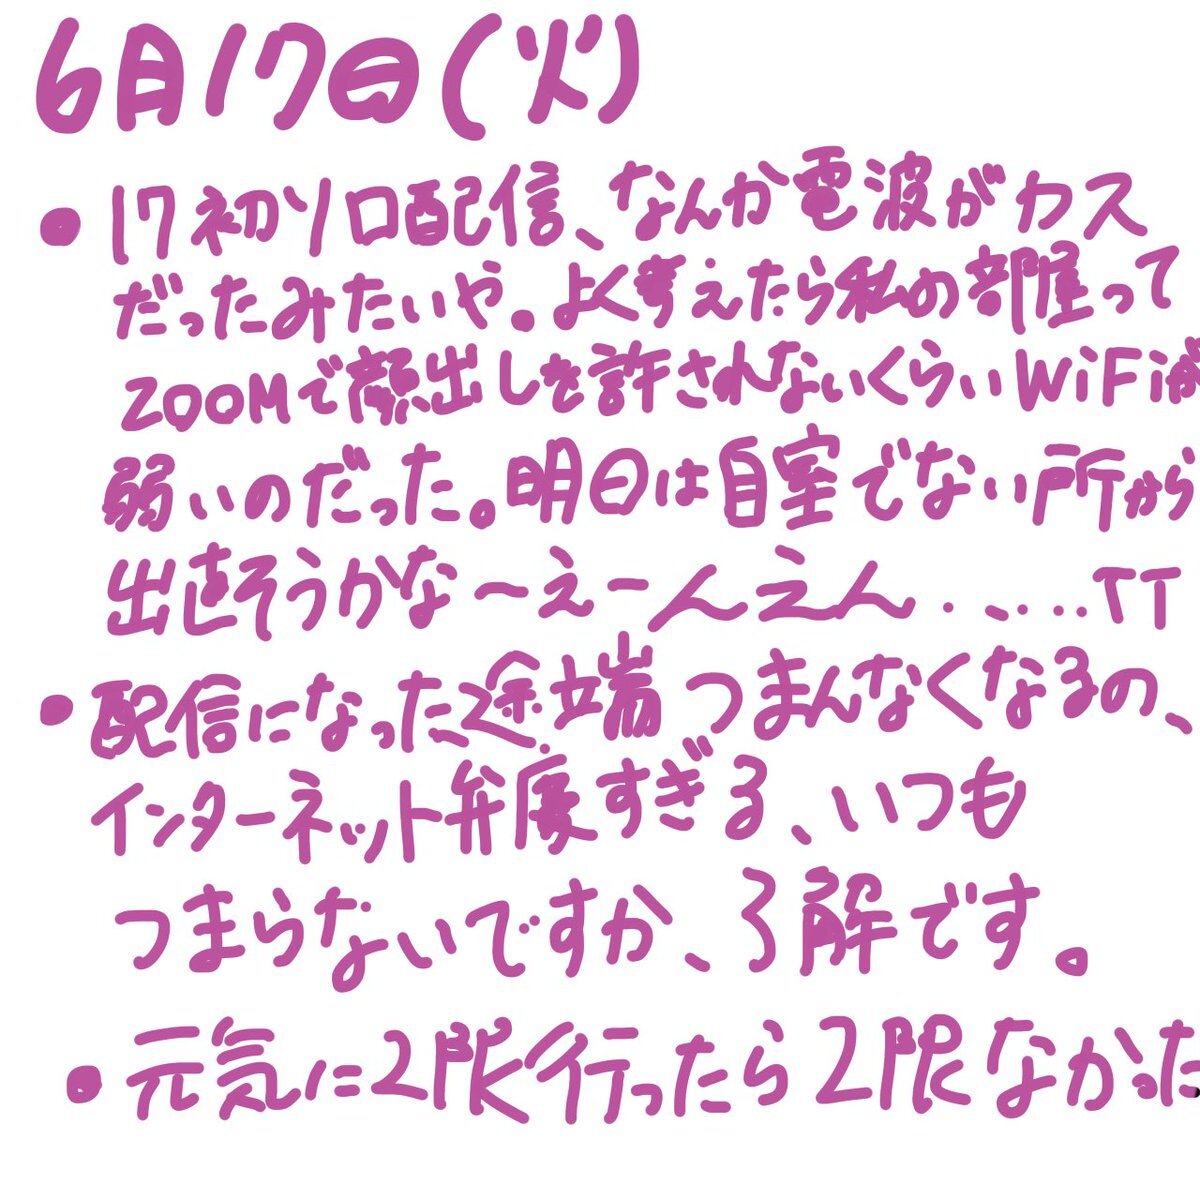 6月17日(火)
• 17初ソロ配信、なんか電波がカス
だったみたいや。よく考えたら私の部屋って
ZOOMで顔出しを許されないくらいWiFiが
弱いのだった。明日は自室でない所から
出直そうかな〜えーんえん・・・・・TT
• 配信になった途端つまんなくなるの、
インターネット弁慶すぎる、いつも
つまらないですか、了解です。
• 元気に2限行ったら2限なかった